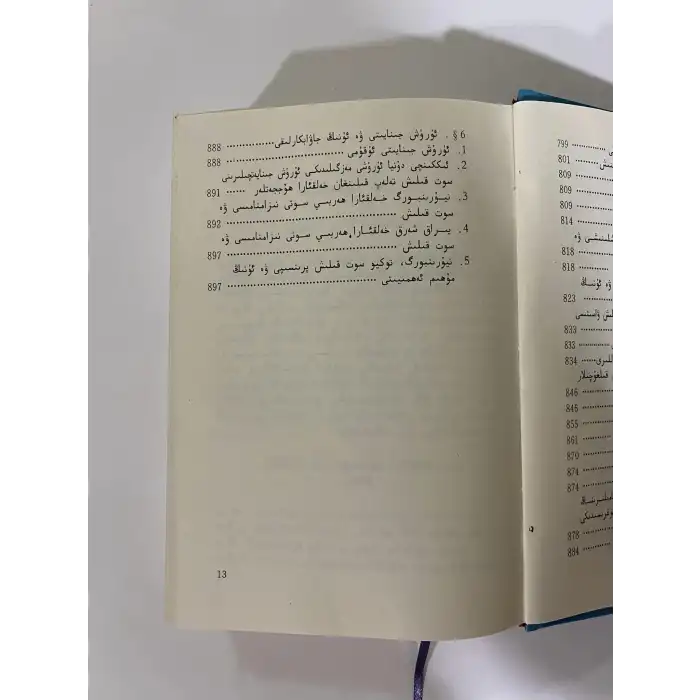 § 6 . ئۇرۇش جىنايىتى ۋە ئۇنىڭ جاۋابكارلىقى ................ 888
1. ئۇرۇش جىنايىتى ئۇقۇمى .................................... 888
2. ئىككىنچى دۇنيا ئۇرۇشى مەزگىلىدىكى ئۇرۇش جىنايەتچىلىرىنى
سوت قىلىش تەلەپ قىلىنغان خەلقئارا ھۆججەتلەر ...... 891
3. نيۇرىنبورگ خەلقئارا ھەربىي سوتى نىزامنامىسى ۋە
سوت قىلىش ................................................ 892
4. يىراق شەرق خەلقئارا ھەربىي سوتى نىزامنامىسى ۋە
سوت قىلىش ................................................ 897
5. نيۇرىنبورگ، توكيو سوت قىلىش پرىنسىپى ۋە ئۇنىڭ
مۇھىم ئەھمىيىتى .......................................... 897
13
799
801
809
809
809
814
818
818
ۋە ئۇنىڭ
823
833
833
834
قىلغۇچىلار
846
845
855
861
870
874
874
878
884